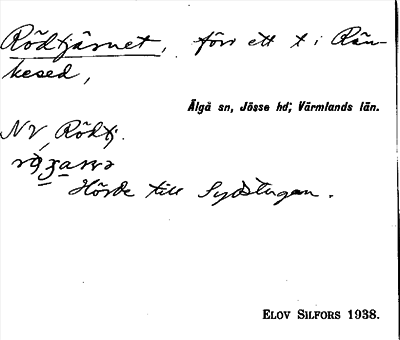 Rödtjärnet, förr ett t i Rän-
kesed,
Älgå sn, Jösse hd, Värmlands län.
NV, Rödtj.
Hörde till Sydstugan.
ELOV SILFORS 1938.